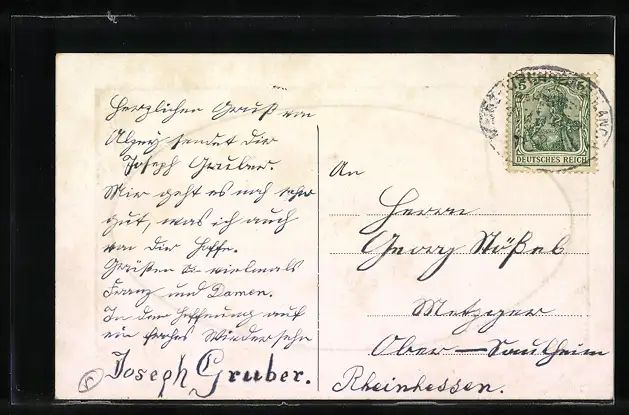 Herzlichen Gruß von
Alzey sendet dir
Joseph Gruber.
Mir geht es noch sehr
gut, was ich auch
von dir hoffe.
Grüßen vielmals
Franz und Damen.
In der Hoffnung auf
ein frohes Wiedersehn
Joseph Gruber.
An
Herrn
Georg Stößel
Metzger
Ober-Saulheim
Rheinhessen.
5 5
DEUTSCHES REICH